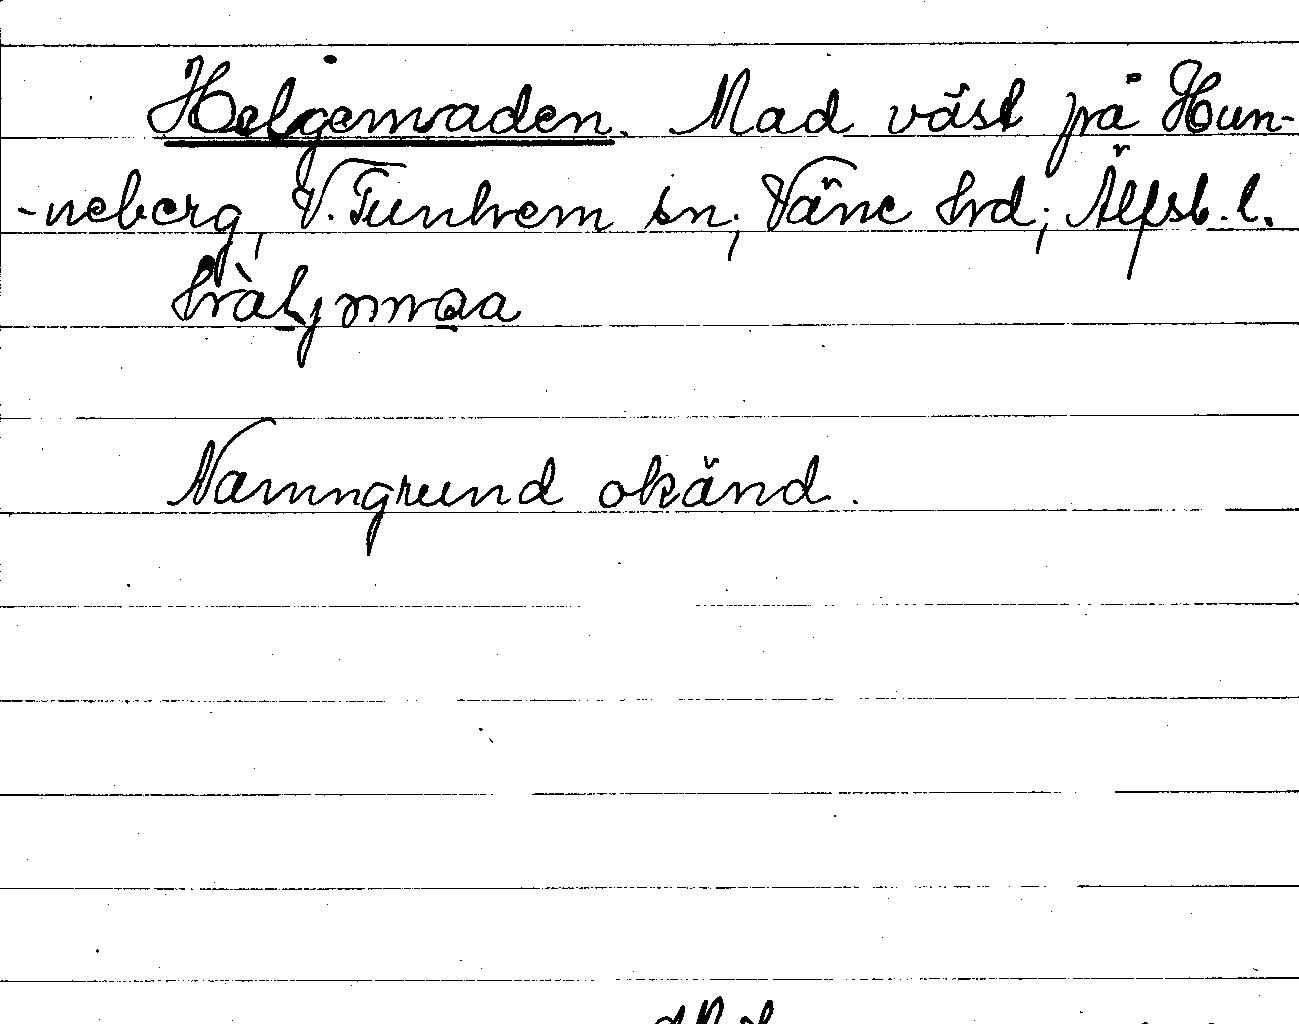 Helgemaden. Mad väst på Hun-
-neberg, V. Tunhem sn; Väne hrd; Älfsb. l.
hàljmaa
Namngrund okänd.